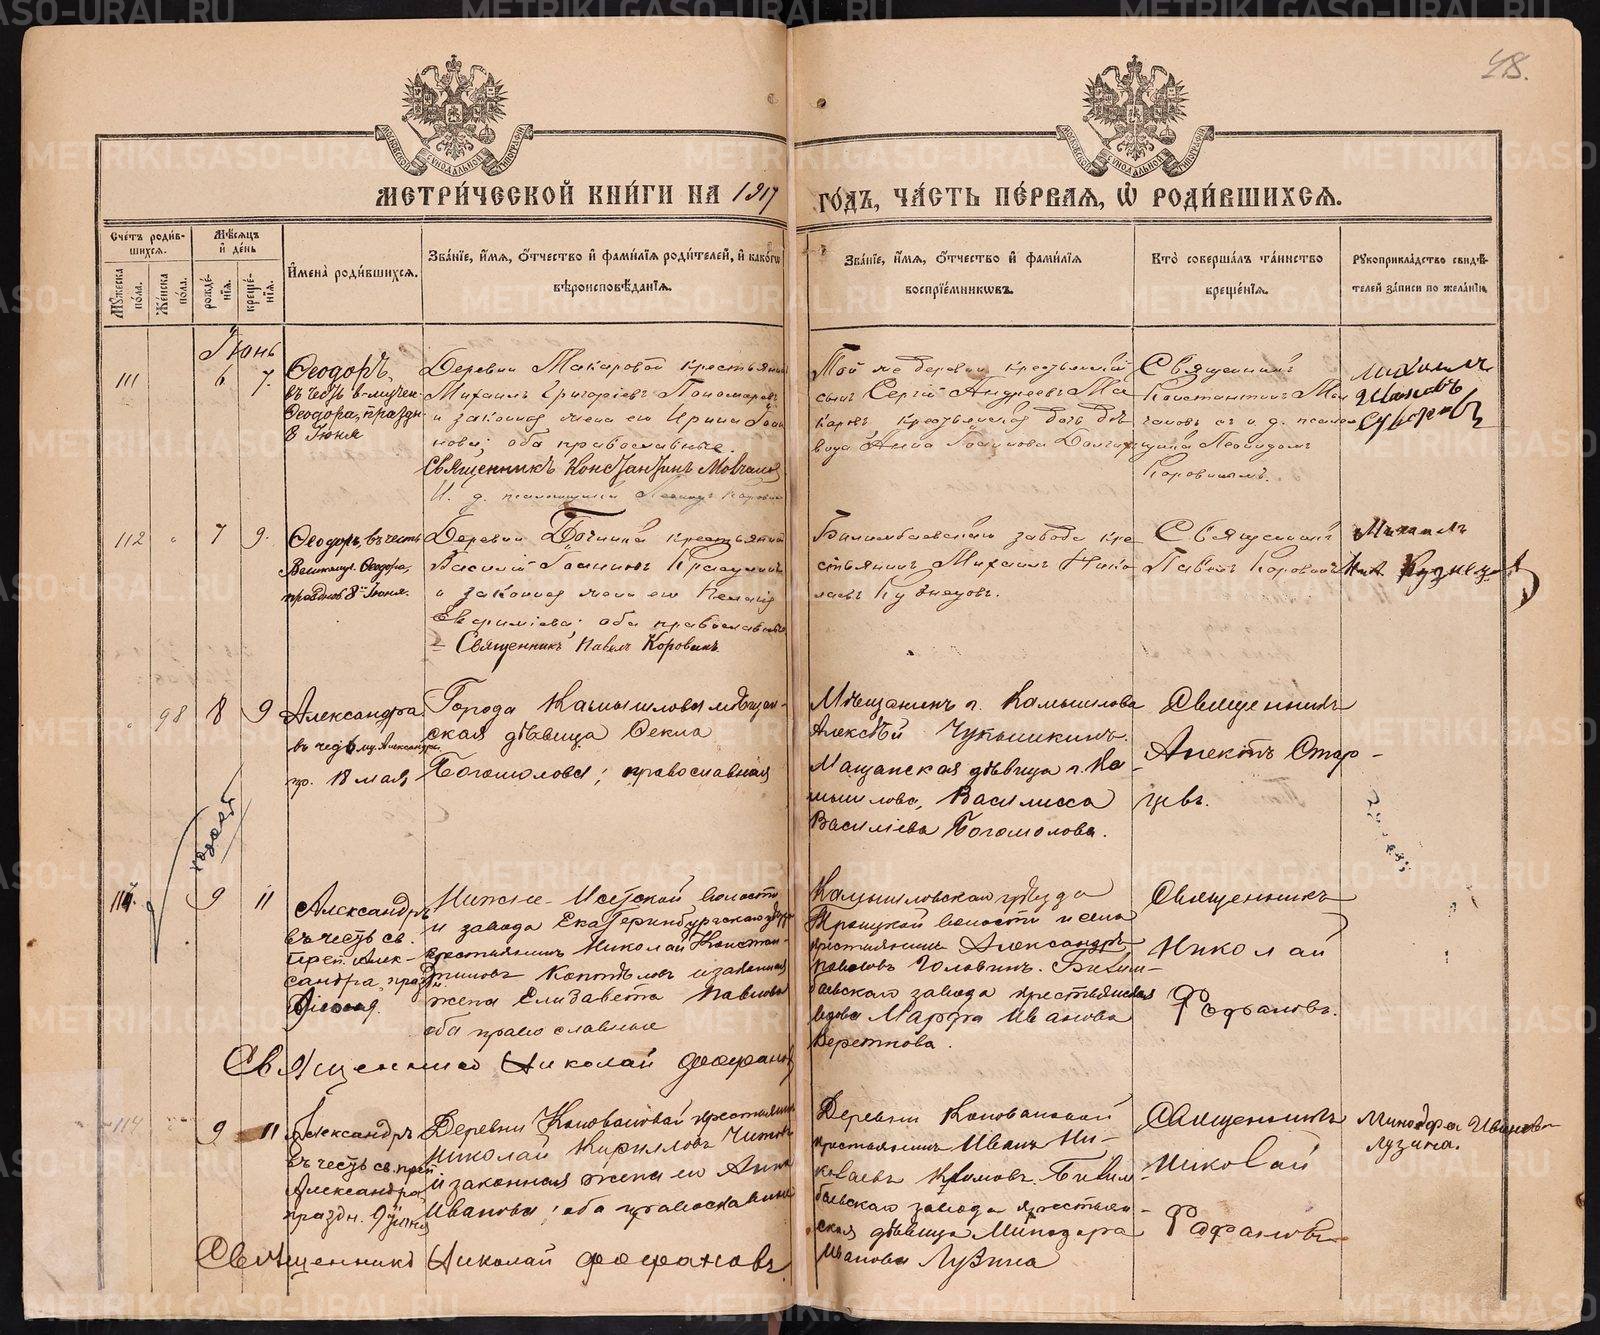 48.
МЕТРИ́ЧЕСКОЙ КНИ́ГИ НА 1917 ГО́ДЪ, ЧА́СТЬ ПЕ́РВАЯ, Ѡ҆ РОДИ́ВШИХСЯ.
Сче́тъ роди́вшихся.
Му́жеска по́ла.
Же́нска по́ла.
Мѣ́сяцъ и҆ де́нь
рожде́нія.
креще́нія.
И҆мена̀ роди́вшихся.
Зва́ніе, и҆́мя, ѻ҆́тчество и҆ фами́лія роди́телей, и҆ како́гѡ
вѣроисповѣ́данія.
Зва́ніе, и҆́мя, ѻ҆́тчество и҆ фами́лія
воспріе́мникѡвъ.
Кто̀ соверша́лъ та́инство
креще́нія.
Рукоприкла́дство свидѣ́-
телей за́писи по жела́нію.
Іюнь
111
6
7.
Ѳеодоръ,
въ честь в-мучен.
Ѳеодора, праздн.
8 Іюня
Деревни Макаровой крестьянинъ
Михаилъ Григорьевъ Пономаревъ
и законная жена его Ирина
нова; оба православные.
Священникъ Константинъ Мовчанов
И. д. псаломщика Леонидъ Коровин
Той же деревни крестьянскій
сынъ Сергій Андреевъ Ма-
каровъ
вица Анна
Священникъ
Константинъ Мол
чановъ съ и. д. псалом
щика Леонидомъ
Коровинымъ.
Михаилъ
Ивановъ
Суворовъ
112
7
9.
Ѳеодоръ, въ честь
Великомуч. Ѳеодора,
празднов. 8 Іюня.
Деревни крестьянинъ
Василій
и законная жена его
Евфиміева; оба православные
Священникъ Павелъ Коровинъ.
Билимбаевскаго завода кре
стьянинъ Михаилъ Нико
лаевъ Кузнецовъ.
Священникъ
Павелъ Коровинъ
Михаилъ
Ник. Кузнецовъ
98
8
9
Александра
въ честь му. Александры,
пр. 18 мая
Города Камышлова мѣщан-
ская дѣвица Ѳекла
Богомолова; православная
Мѣщанинъ г. Камышлова
Алексѣй Чукышкинъ.
Мѣщанская дѣвица г. Ка-
мышлова, Василисса
Васильева Богомолова.
Священникъ
Старцевъ.
9
11
Александръ
въ честь св.
Преп. Алек-
сандра, празд.
Нижне-Исетской волости
и завода Екатеринбургскаго уѣзда
крестьянинъ Николай Констан-
тиновъ Коптѣловъ и законная
жена Елизавета Павлова
оба православные
Священникъ Николай Фофановъ
Камышловскаго уѣзда
Троицкой волости и села
крестьянинъ Александръ
Павловъ Головинъ. Билим-
баевскаго завода крестьянская
вдова Марфа Иванова
Священникъ
Николай
Фофановъ.
114
9
11
Александръ
въ честь св. преп.
Александра,
праздн. 9 іюня
Деревни Коноваловой крестьянинъ
Николай Кириловъ
и законная жена его Анна
Иванова; оба православные
Священникъ Николай Фофановъ.
Деревни Коноваловой
крестьянинъ Иванъ Ни-
колаевъ Климовъ. Билим-
баевскаго завода крестьян-
ская дѣвица Минодора
Иванова Лузина
Священникъ
Николай
Фофановъ
Минодора Иванова
Лузина.
METRIKI.GASO-URAL.RU